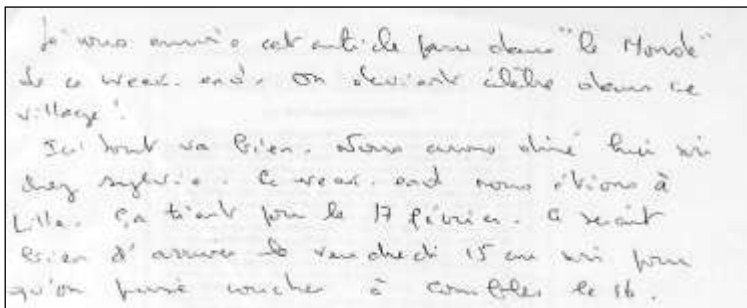 Je vous envoie cet article paru dans "le Monde"
de ce week-end. On devient célèbre dans ce
village !
Ici tout va bien. Nous avons dîné hier soir
chez Sylvie. Ce week-end nous étions à
Lille. Ça tient pour le 17 février. Ce serait
bien d'arriver le vendredi 15 au soir pour
qu'on puisse coucher à Combles le 16.